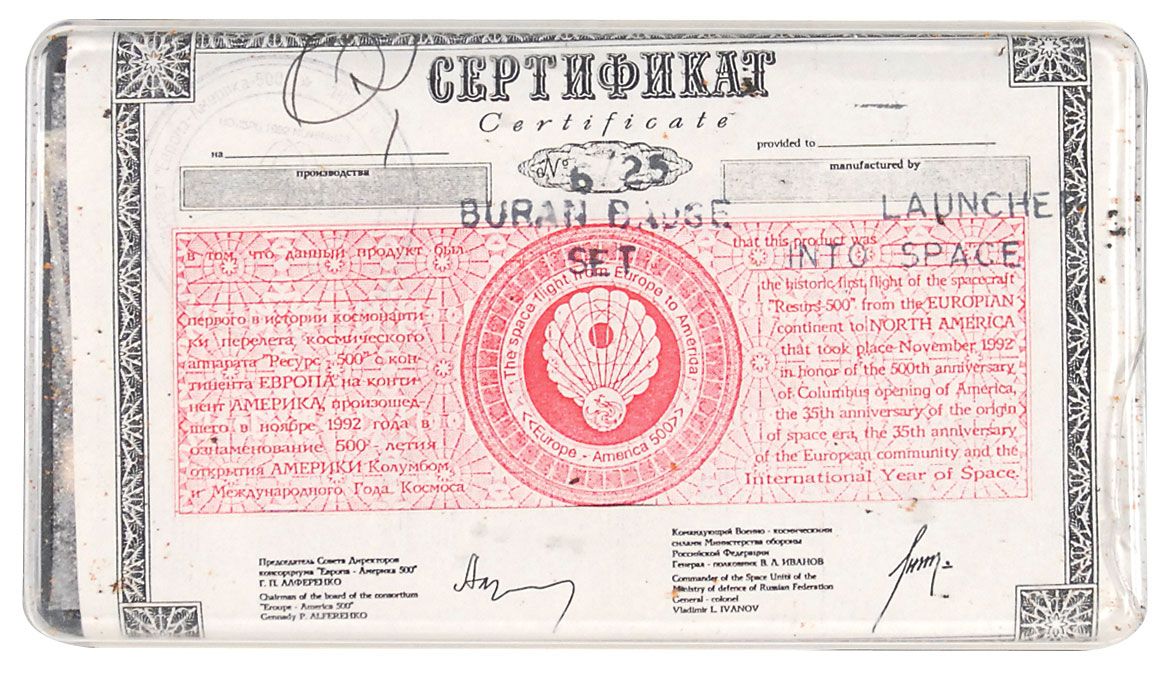 СЕРТИФИКАТ
Certificate
на
provided to
производства
№
6/25
manufactured by
BURAN BADGE
SET
LAUNCHED
INTO SPACE
в том, что данный продукт был
первого в истории космонавти-
ки перелета космического
аппарата "Ресурс - 500" с кон-
тинента ЕВРОПА на конти-
нент АМЕРИКА, произошед-
шего в ноябре 1992 года в
ознаменование 500 - летия
открытия АМЕРИКИ Колумбом
и Международного Года Космоса
The space flight from Europe to America
<<Europe - America 500>>
that this product was
the historic first flight of the spacecraft
"Resurs-500" from the EUROPIAN
continent to NORTH AMERICA
that took place November 1992
in honor of the 500th anniversary
of Columbus opening of America,
the 35th anniversary of the origin
of space era, the 35th anniversary
of the European community and the
International Year of Space.
Председатель Совета Директоров
консорциума "Европа - Америка 500"
Г. П. АЛФЕРЕНКО
Chairman of the board of the consortium
"Eroupe - America 500"
Gennady P. ALFERENKO
Командующий Военно - космическими
силами Министерства обороны
Российской Федерации
Генерал - полковник В. Л. ИВАНОВ
Commander of the Space Units of the
Ministry of defence of Russian Federation
General - colonel
Vladimir L. IVANOV